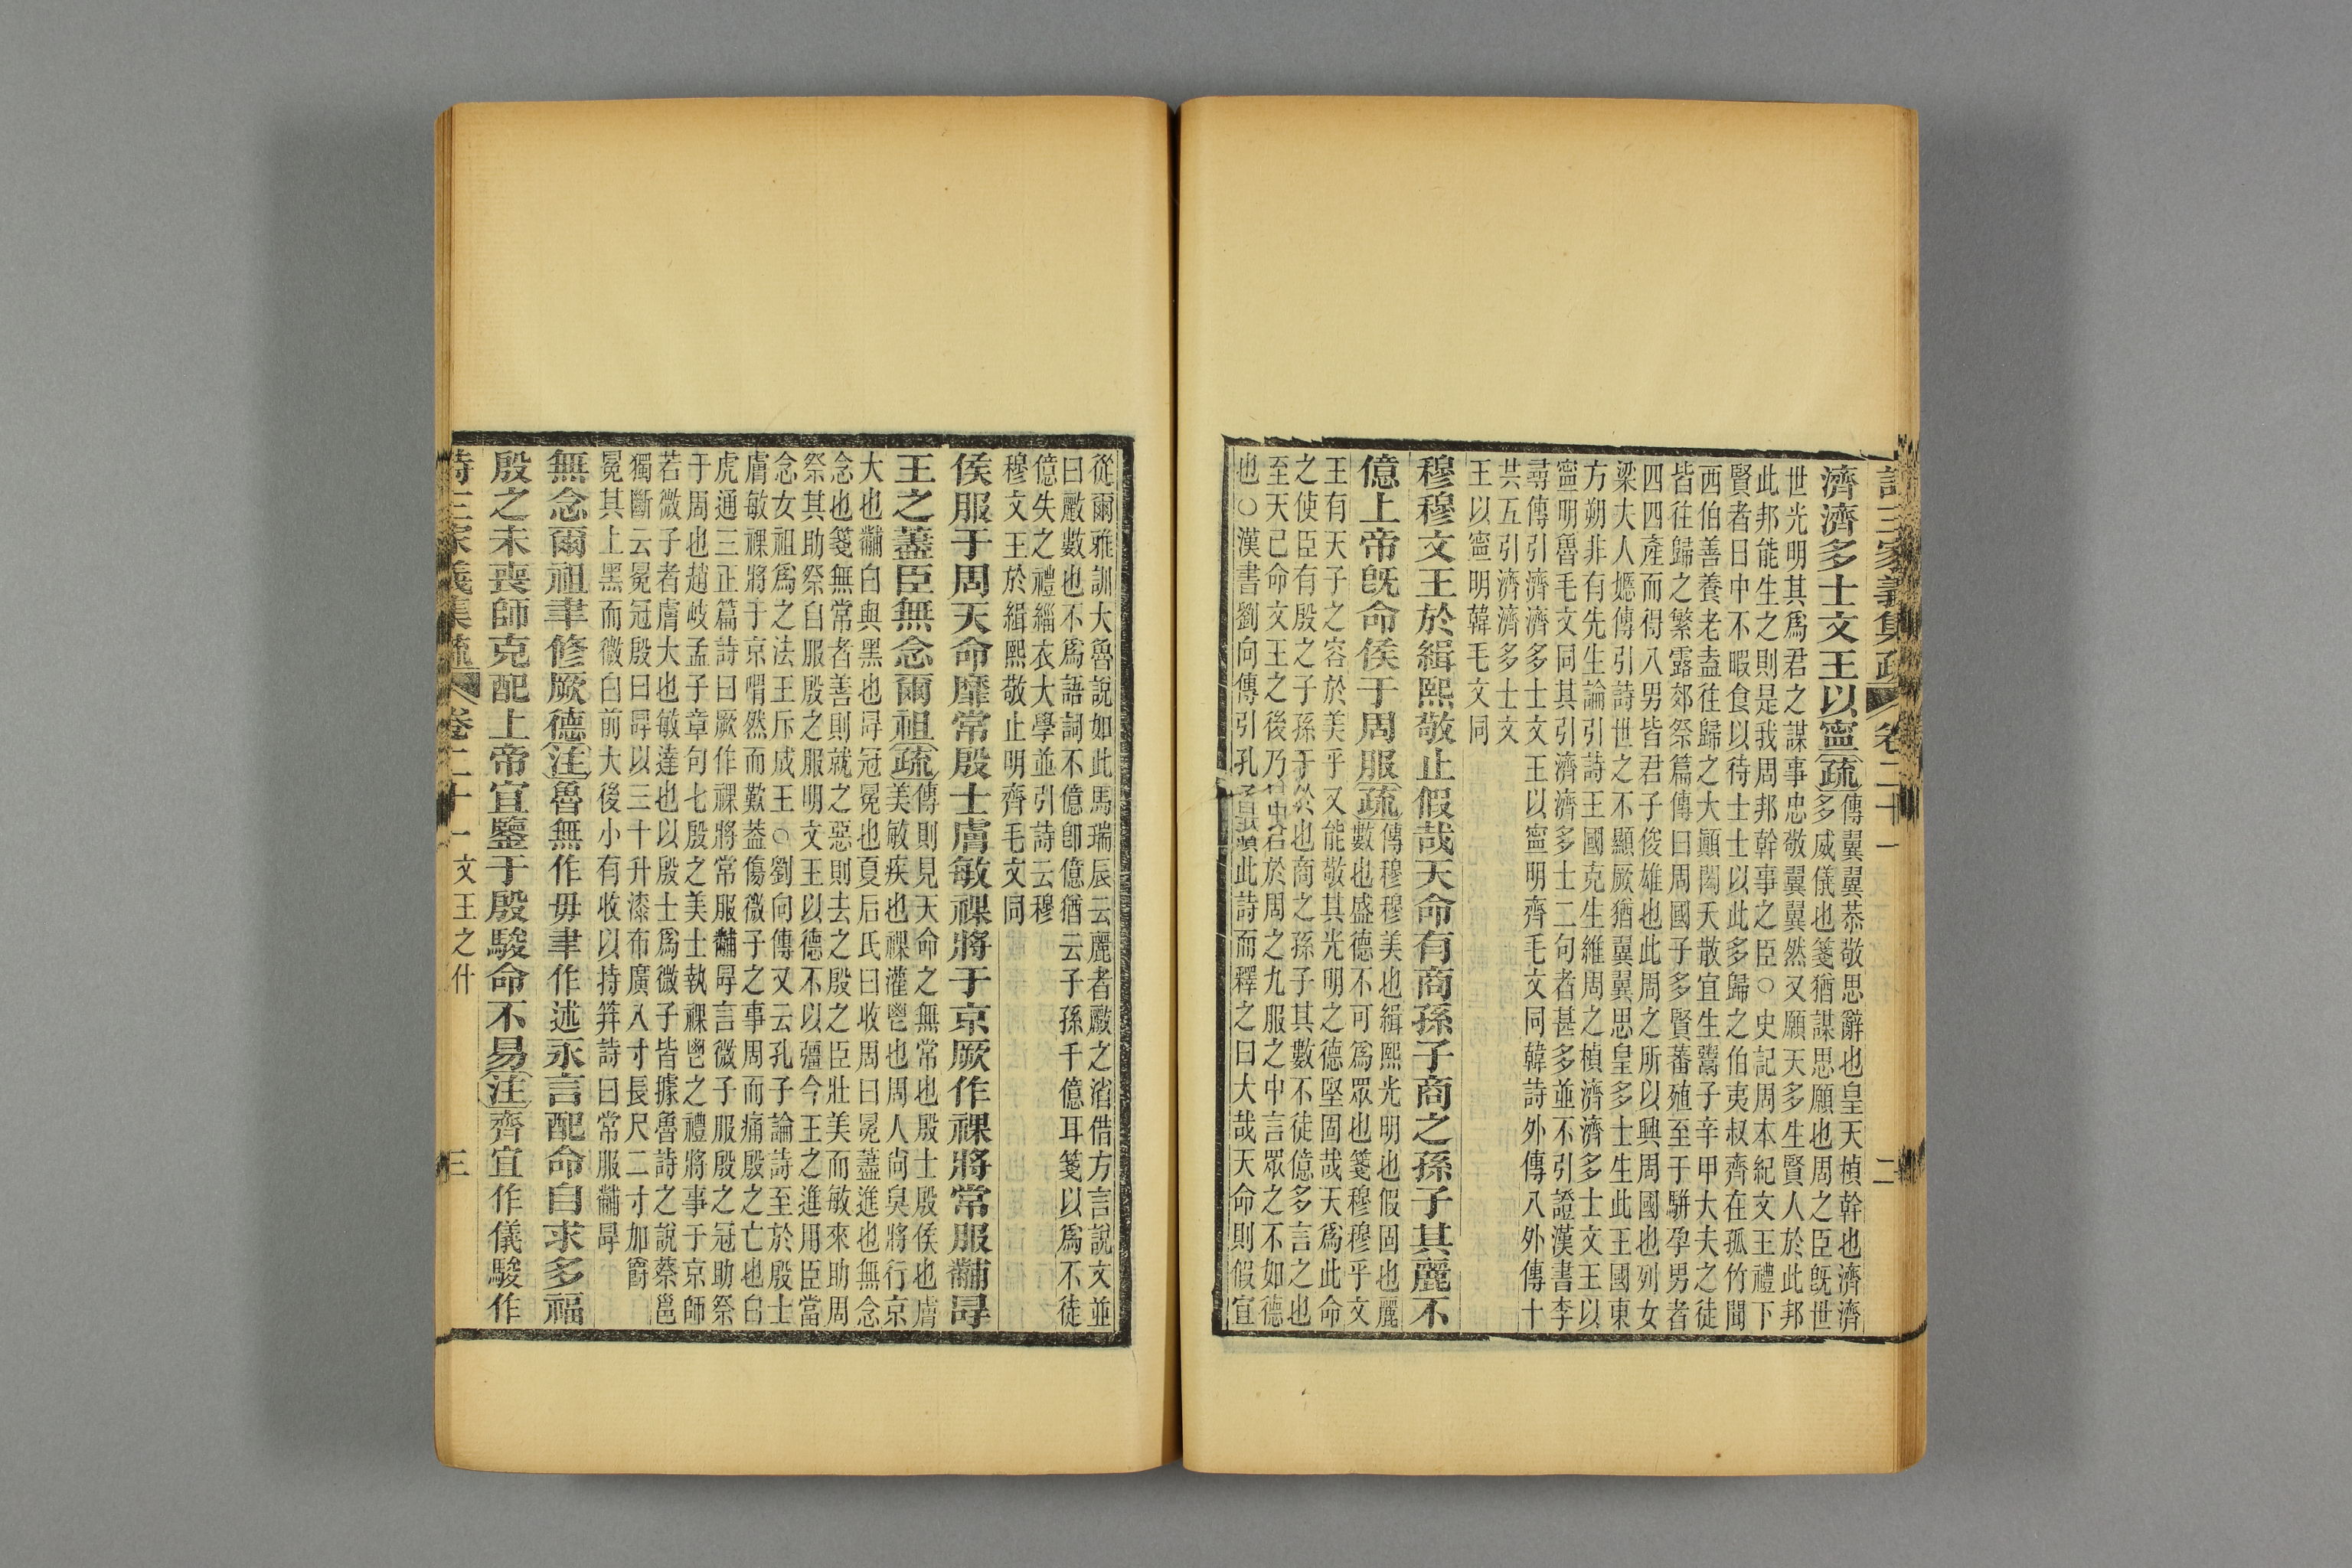 詩三家義集疏 卷二十一 二
濟濟多士文王以寧疏
傳翼翼恭敬思辭也皇天楨幹也濟濟
多威儀也箋猶謀思願也周之臣旣世
世光明其爲君之謀事忠敬翼翼然又願天多生賢人於此邦
此邦能生之則是我周邦幹事之臣○史記周本紀文王禮下
賢者日中不暇食以待士士以此多歸之伯夷叔齊在孤竹聞
西伯善養老盍往歸之大顚閎夭散宜生鬻子辛甲大夫之徒
皆往歸之繁露郊祭篇傳曰周國子多賢蕃殖至于駢孕男者
四四產而得八男皆君子俊雄也此周之所以興周國也列女
梁夫人嫕傳引詩世之不顯厥猶翼翼思皇多士生此王國東
方朔非有先生論引詩王國克生維周之楨濟濟多士文王以
寧明魯毛文同其引濟濟多士二句者甚多並不引證漢書李
尋傳引濟濟多士文王以寧明齊毛文同韓詩外傳八外傳十
共五引濟濟多士文
王以寧明韓毛文同
穆穆文王於緝熙敬止假哉天命有商孫子商之孫子其麗不
億上帝旣命侯于周服疏
傳穆穆美也緝熙光明也假固也麗
數也盛德不可爲眾也箋穆穆乎文
王有天子之容於美乎又能敬其光明之德堅固哉天爲此命
之使臣有殷之子孫于也商之孫子其數不徒億多言之也
至天已命文王之後乃君於周之九服之中言眾之不如德
也○漢書劉向傳引孔此詩而釋之曰大哉天命則假宜
從爾雅訓大魯說如此馬瑞辰云麗者䴡之渻借方言說文並
曰䴡數也不爲語詞不億卽億猶云子孫千億耳箋以爲不徒
億失之禮緇衣大學並引詩云穆
穆文王於緝熙敬止明齊毛文同
侯服于周天命靡常殷士膚敏祼將于京厥作祼將常服黼冔
王之藎臣無念爾祖疏
傳則見天命之無常也殷士殷侯也膚
美敏疾也祼灌鬯也周人尙臭將行京
大也黼白與黑也冔冠冕也夏后氏曰收周曰冕藎進也無念
念也箋無常者善則就之惡則去之殷之臣壯美而敏來助周
祭其助祭自服殷之服明文王以德不以彊今王之進用臣當
念女祖爲之法王斥成王○劉向傳又云孔子論詩至於殷士
膚敏祼將于京喟然而歎葢傷微子之事周而痛殷之亡也白
虎通三正篇詩曰厥作祼將常服黼冔言微子服殷之冠助祭
于周也趙岐孟子章句七殷之美士執祼鬯之禮將事于京師
若微子者膚大也敏達也以殷士爲微子皆據魯詩之說蔡邕
獨斷云冕冠殷曰冔以三十升漆布廣八寸長尺二寸加爵
冕其上黑而微白前大後小有收以持笄詩曰常服黼冔
無念爾祖聿修厥德注魯無作毋聿作述永言配命自求多福
殷之未喪師克配上帝宜鑒于殷駿命不易注齊宜作儀駿作
詩三家義集疏 卷二十一 文王之什 三